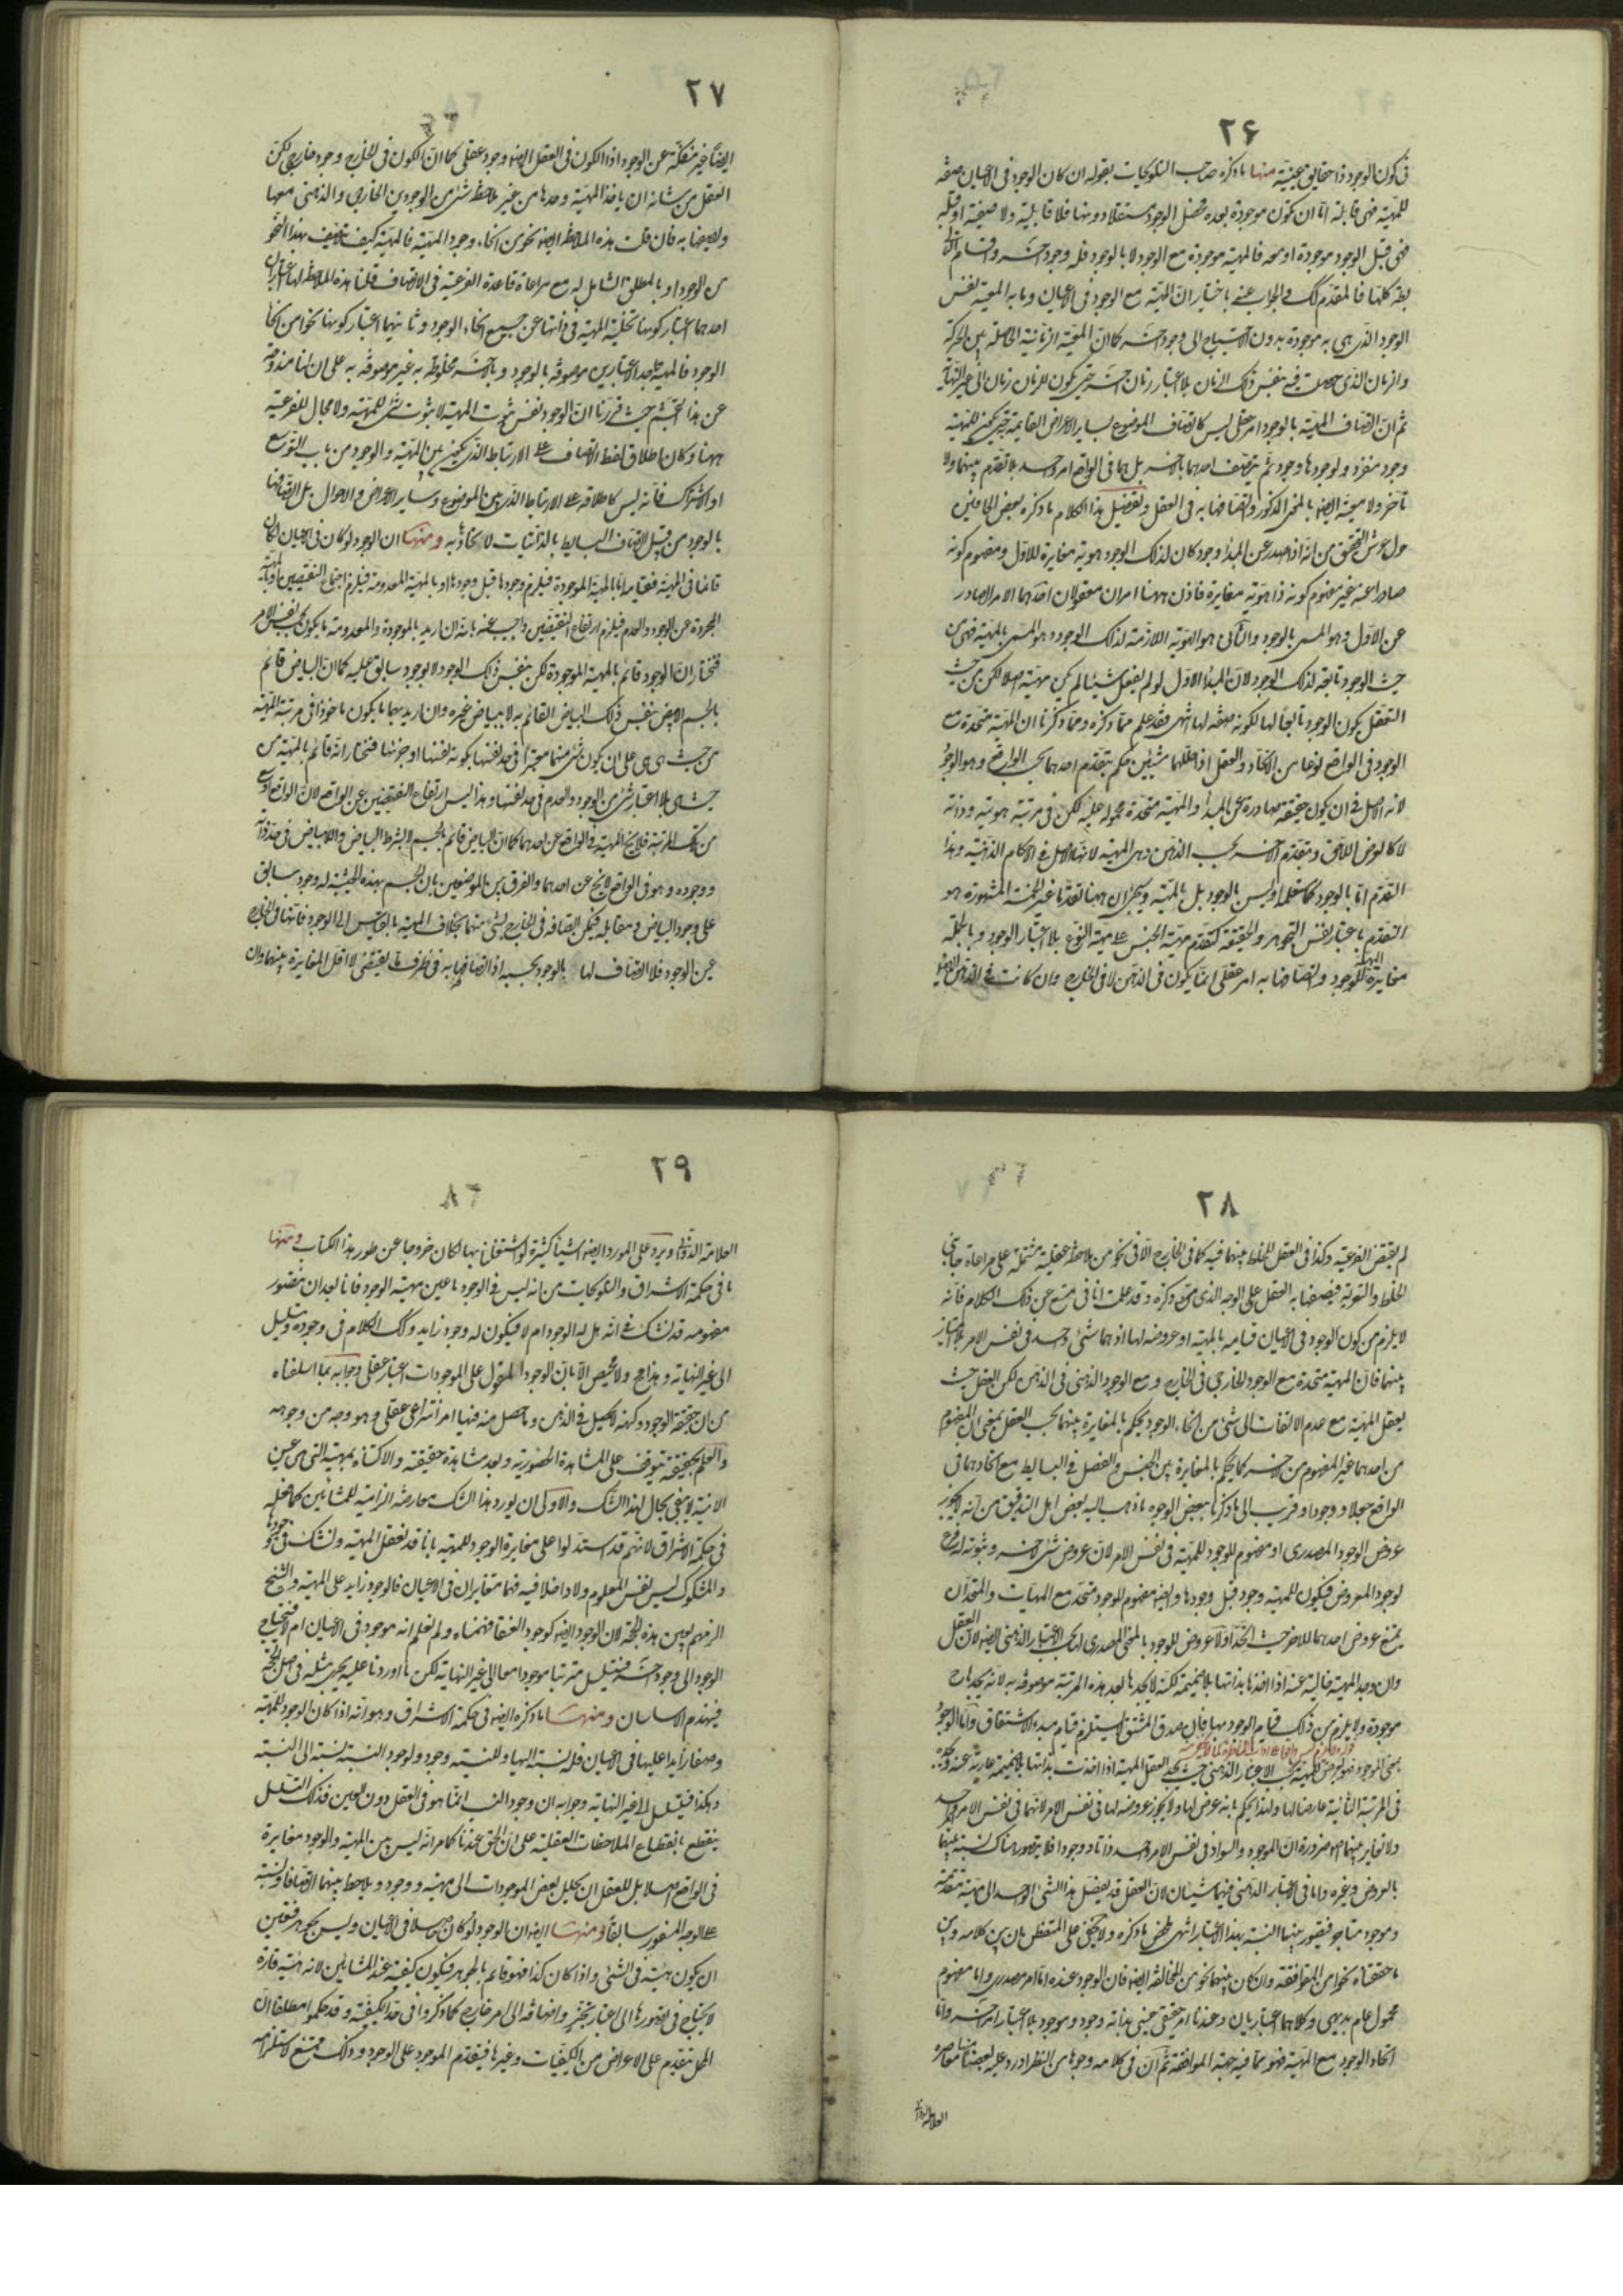 ۲۶
فی کون الوجود ذا حقایق عینیة منها ما ذکره صاحب التلویحات بقوله ان کان الوجود فی الاعیان صفة
للمهیة فهی قابلة اما ان تکون موجودة بعده فحصل الوجود مستقلا دونها فلا قابلیة ولا صفتیة او قبله
فهی قبل الوجود موجودة او معه فالمهیة موجودة مع الوجود لا بالوجود فله وجود آخر واقسام التالی
باطلة کلها فالمقدم کک والجواب عنه باختیار ان المهیة مع الوجود فی الاعیان وما به المعیة نفس
الوجود الذی هی به موجودة بدون الاحتیاج الی وجود آخر کما ان المعیة الزمانیة الحاصلة بین الحرکة
والزمان الذی حصلت فیه بنفس ذلک الزمان بلا اعتبار زمان آخر حتی یکون للزمان زمان الی غیر النهایة
ثم ان اتصاف المهیة بالوجود امر عقلی لیس کاتصاف الموضوع بسایر الاعراض القایمة به حتی یکون للمهیة
وجود منفرد ولوجودها وجود ثم یتصف احدهما بالآخر بل هما فی الواقع امر واحد بلا تقدم بینهما ولا
تأخر ولا معیة ایضا بالمعنی المذکور واتصافها به فی العقل وتفصیل هذا الکلام ما ذکره بعض الحائمین
حول عرش التحقیق من انه اذا صدر عن المبدأ وجود کان لذلک الوجود هویة مغایرة للاول ومفهوم کونه
صادرا عنه غیر مفهوم کونه ذا هویة مغایرة فاذن ههنا امران معقولان احدهما الامر الصادر
عن الاول وهو المسمی بالوجود والثانی هو الهویة اللازمة لذلک الوجود وهو المسمی بالمهیة فهی من
حیث الوجود تابعة لذلک الوجود لان المبدأ الاول لو لم یفعل شیئا لم یکن مهیة اصلا لکن من حیث
التعقل یکون الوجود تابعا لها لکونه صفة لها انتهی فقد علم مما ذکره ومما ذکرنا ان المهیة متحدة مع
الوجود فی الواقع نوعا من الاتحاد والعقل اذا حللهما شیئین حکم بتقدم احدهما بحسب الواقع وهو الوجود
لانه الاصل فی ان یکون حقیقة صادرة عن المبدأ والمهیة متحدة محمولة علیه لکن فی مرتبة هویته وذاته
لا کالعرض اللاحق وبتقدم الآخر بحسب الذهن وهی المهیة لانها الاصل فی الاحکام الذهنیة وهذا
التقدم اما بالوجود کما ستعلم او لیس بالوجود بل بالمهیة وسیجئ ان ههنا تقدما غیر الخمسة المشهورة هو
التقدم باعتبار نفس التجوهر والحقیقة کتقدم مهیة الجنس علی مهیة النوع بلا اعتبار الوجود وبالجملة
مغایرة المهیة للوجود واتصافها به امر عقلی انما یکون فی الذهن لا فی الخارج وان کانت فی الذهن ایضا
۲۷
ایضا غیر منفکة عن الوجود اذ الکون فی العقل ایضا وجود عقلی کما ان الکون فی الخارج وجود خارجی لکن
العقل من شانه ان یاخذ المهیة وحدها من غیر ملاحظة شئ من الوجودین الخارجی والذهنی معها
ویصفها به فان قلت هذه الملاحظة ایضا نحو من انحاء وجود المهیة فالمهیة کیف تتصف بهذا النحو
من الوجود او بالمطلق الشامل له مع مراعاة قاعدة الفرعیة فی الاتصاف قلنا هذه الملاحظة لها اعتباران
احدهما اعتبار کونها تخلیة المهیة فی ذاتها عن جمیع انحاء الوجود وثانیهما اعتبار کونها نحوا من انحاء
الوجود فالمهیة باحد الاعتبارین موصوفة بالوجود وبالآخر مخلوطة به غیر موصوفة به علی ان لنا مندوحة
عن هذا التجشم حیث قررنا ان الوجود نفس ثبوت المهیة لا ثبوت شئ للمهیة ولا مجال للفرعیة
ههنا وکان اطلاق لفظ الاتصاف علی الارتباط الذی یکون بین المهیة والوجود من باب التوسع
او الاشتراک فانه لیس کاطلاقه علی الارتباط الذی بین الموضوع وسایر الاعراض والاحوال بل اتصافها
بالوجود من قبیل اتصاف البسایط بالذاتیات لاتحادها به ومنها ان الوجود لو کان فی الاعیان لکان
قائما فی المهیة فقیامه اما بالمهیة الموجودة فیلزم وجودها قبل وجودها او بالمهیة المعدومة فیلزم اجتماع النقیضین او بالمهیة
المجردة عن الوجود والعدم فیلزم ارتفاع النقیضین واجیب عنه بانه ان ارید بالموجودة والمعدومة ما یکون بحسب نفس الامر
فنختار ان الوجود قائم بالمهیة الموجودة لکن بنفس ذلک الوجود لا بوجود سابق علیه کما ان البیاض قائم
بالجسم الابیض بنفس ذلک البیاض القائم به لا ببیاض غیره وان ارید بهما ما یکون ماخوذا فی مرتبة المهیة
من حیث هی هی علی ان یکون شئ منهما معتبرا فی حد نفسها بکونه نفسها او جزئها فنختار انه قائم بالمهیة من
حیث هی بلا اعتبار شئ من الوجود والعدم فی حد نفسها وهذا لیس ارتفاع النقیضین عن الواقع لان الواقع اوسع
من تلک المرتبة فلا یخلو المهیة فی الواقع عن احدهما کما ان البیاض قائم بالجسم لا بشرط البیاض واللابیاض فی حد ذاته
ووجوده وهو فی الواقع لا یخلو عن احدهما والفرق بین الموضعین بان الجسم بهذه الحیثیة له وجود سابق
علی وجود البیاض ومقابله فیمکن اتصافه فی الخارج بشئ منهما بخلاف المهیة بالقیاس الی الوجود فانها فی الخارج
عین الوجود فلا اتصاف لها بالوجود بحسبه اذ اتصافها به فی ظرف ما یقتضی لا اقل المغایرة بینهما وان
۲۸
لم یقتض الفرعیة وکذا فی العقل للخلط بینهما فیه کما فی الخارج الا فی نحو من ملاحظة عقلیة مشتملة علی مراعاة جانبی
الخلط والتعریة فیصفها به العقل علی الوجه الذی مر ذکره وقد علمت انا فی متسع عن ذلک الکلام فانه
لا یلزم من کون الوجود فی الاعیان قیامه بالمهیة او عروضه لها اذ هما شئ واحد فی نفس الامر بلا امتیاز
بینهما فان المهیة متحدة مع الوجود الخارجی فی الخارج ومع الوجود الذهنی فی الذهن لکن العقل حیث
یعقل المهیة مع عدم الالتفات الی شئ من انحاء الوجود یحکم بالمغایرة بینهما بحسب العقل بمعنی ان المفهوم
من احدهما غیر المفهوم من الآخر کما یحکم بالمغایرة بین الجنس والفصل فی البسایط مع اتحادهما فی
الواقع جعلا ووجودا وقریب الی ما ذکرنا ببعض الوجوه ما ذهب الیه بعض اهل التدقیق من انه لا یجوز
عروض الوجود المصدری او مفهوم الموجود للمهیة فی نفس الامر لان عروض شئ لآخر وثبوته له فرع
لوجود المعروض فیکون للمهیة وجود قبل وجودها وایضا مفهوم الموجود متحد مع المهیات والمتحدان
یمتنع عروض احدهما للآخر حیث اتحدا ولا عروض للوجود بالمعنی المصدری لها بحسب الاعتبار الذهنی ایضا لان العقل
وان وجد المهیة خالیة عنه اذا اخذها بذاتها بلا ضمیمة لکنه لا یجدها بعد هذه المرتبة موصوفة به لانه یجدها ح
موجودة ولا یلزم من ذلک قیام الوجود بها فان صدق المشتق لا یستلزم قیام مبدء الاشتقاق واما الوجود
بمعنی الموجود فهو یعرض للمهیة بحسب الاعتبار الذهنی حیث یجد العقل المهیة اذا اخذت بذاتها بلا ضمیمة عاریة عنه ویجده
فی المرتبة الثانیة عارضا لها ولهذا یحکم بانه عرضی لها ولا یجوز عروضه لها فی نفس الامر لانهما فی نفس الامر واحد
ولا تغایر بینهما فیه ضرورة ان الموجود والسواد فی نفس الامر واحد ذاتا ووجودا فلا یتصور هناک نسبة بینهما
بالعروض وغیره واما فی الاعتبار الذهنی فهما شیئان لان العقل قد یفصل هذا الشئ الواحد الی مهیة متقدمة
وموجود متاخر فیتصور بینهما النسبة بهذا الاعتبار انتهی ملخص ما ذکره ولا یخفی علی المتفطن ان بین کلامه وبین
ما حققناه نحوا من الموافقة وان کان بینهما نحو من المخالفة ایضا فان الوجود عنده اما امر مصدری واما مفهوم
محمول عام بدیهی وکلاهما اعتباریان وعندنا امر حقیقی عینی بذاته وجود وموجود بلا اعتبار امر آخر واما
اتحاد الوجود مع المهیة فهو مما فیه جهة الموافقة ثم ان فی کلامه وجوها من النظر اورد علیه بعضها معاصره
العلامة الدوانی
۲۹
العلامة الدوانی ویرد علی المورد ایضا اشیاء کثیرة لو اشتغلنا بها لکان خروجا عن طور هذا الکتاب ومنها
ما فی حکمة الاشراق والتلویحات من انه لیس فی الوجود ما عین مهیة الوجود فانا بعد ان نتصور
مفهومه قد نشک فی انه هل له الوجود ام لا فیکون له وجود زاید وکک الکلام فی وجوده ویتسلسل
الی غیر النهایة وهذا مح ولا محیص الا بان الوجود المقول علی الموجودات اعتبار عقلی وجوابه بما اسلفناه
من ان حقیقة الوجود وکنهه لا یحصل فی الذهن وما حصل منه فیها امر انتزاعی عقلی وهو وجه من وجوهه
والعلم بحقیقته یتوقف علی المشاهدة الحضوریة وبعد مشاهدة حقیقته والاکتناه بمهیته التی هی عین
الانیة لا یبقی مجال لهذا الشک والاولی ان یورد هذا الشک معارضة الزامیة للمشائین کما فعله
فی حکمة الاشراق لانهم قد استدلوا علی مغایرة الوجود للمهیة بانا قد نعقل المهیة ونشک فی وجودها
والمشکوک لیس نفس المعلوم ولا داخلا فیه فهما متغایران فی الاعیان فالوجود زاید علی المهیة والشیخ
الزمهم بعین هذه الحجة لان الوجود ایضا کوجود العنقا فهمناه ولم نعلم انه موجود فی الاعیان ام لا فیحتاج
الوجود الی وجود آخر فیتسلسل مترتبا موجودا معا الی غیر النهایة لکن ما اوردنا علیه یجری مثله فی اصل الحجة
فینهدم الاساسان ومنها ما ذکره ایضا فی حکمة الاشراق وهو انه اذا کان الوجود للمهیة
وصفا زایدا علیها فی الاعیان فله نسبة الیها وللنسبة وجود ولوجود النسبة نسبة الی النسبة
وهکذا فیتسلسل الی غیر النهایة وجوابه ان وجود النسب انما هو فی العقل دون العین فذلک التسلسل
ینقطع بانقطاع الملاحظات العقلیة علی ان الحق عندنا کما مر انه لیس بین المهیة والوجود مغایرة
فی الواقع اصلا بل للعقل ان یحلل بعض الموجودات الی مهیة ووجود ویلاحظ بینهما اتصافا ونسبة
علی الوجه المذکور سابقا ومنها ایضا ان الوجود لو کان حاصلا فی الاعیان ولیس بجوهر فتعین
ان یکون هیئة فی الشئ واذا کان کذا فهو قائم بالجوهر فیکون کیفیة عند المشائین لانه هیئة قارة
لا یحتاج فی تصورها الی اعتبار تجز واضافة الی امر خارج کما ذکروا فی حد الکیفیة وقد حکموا مطلقا ان
المحل یتقدم علی الاعراض من الکیفیات وغیرها فیتقدم الموجود علی الوجود وذلک ممتنع لاستلزامه